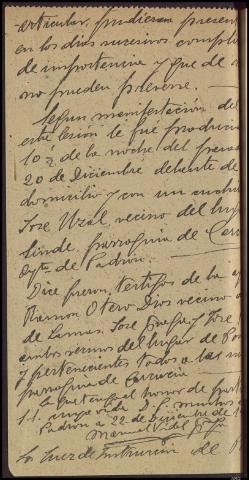 articular, pudieran present
en los dias sucesivos compli
de importancia y que de
no pueden preverse.
Segun manifestación del
esta lesion le fué producid
10 ½ de la noche del pasad
20 de Diciembre delante de
domicilio y con un cuchi
Jose Uzal, vecino del lug
Linde, parroquia de Car
Aytº de Padrón.
Dice fueron testigos de la a
Ramon Otero Dios vecino d
de Lamas, Jose y Jose
ambos vecinos del lugar de Po
y pertenecientes todos a las
parroquia de Carcacia
Lo que tengo el honor de part
S.S. cuya vida D. g. muchos
Padron a 22 de Diciembre de 1
Manuel Vidal
Sr Juez de Instrucción de P